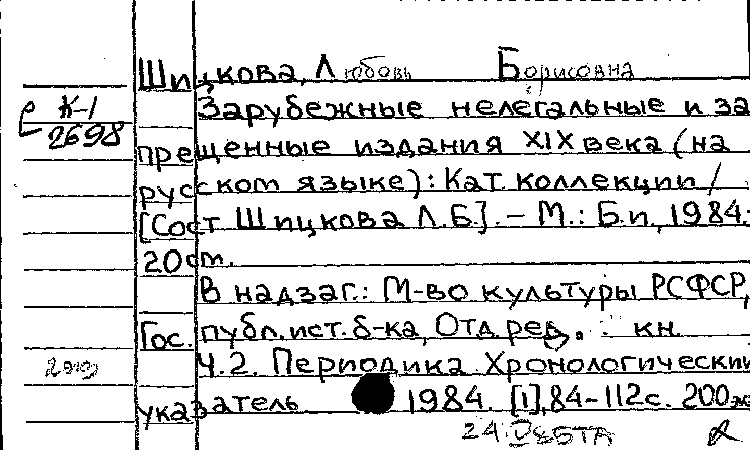 Шицкова, Любовь Борисовна
К-1
2698
Зарубежные нелегальные и за
прещенные издания XIX века (на
русском языке): Кат. коллекции /
[Сост Шицкова Л.Б.]. – М.: Б.и., 1984.
20 см.
В надзаг.: М-во культуры РСФСР,
Гос. публ. ист. б-ка, Отд. ред. кн.
Ч.2. Периодика Хронологический
указатель 1984. [1], 84-112 с. 200 эк